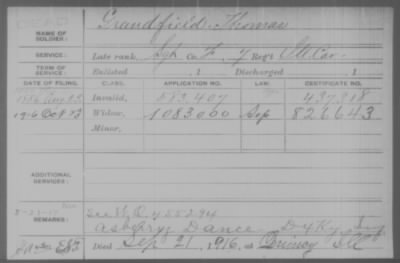 NAME OF SOLDIER: Grandfield, Thomas
SERVICE: Late rank, Sgt Co. F, 7 Reg't Ill Cav.
TERM OF SERVICE: Enlisted , 1 Discharged , 1
DATE OF FILING. CLASS. APPLICATION NO. LAW. CERTIFICATE NO.
1886 Aug Invalid, 583.407 437.318
1916 Oct 13 Widow, 1083.000 Sep 826643
Minor,
ADDITIONAL SERVICES:
REMARKS:
Dance
Died Sep 21, 1916, at Quincy Ill